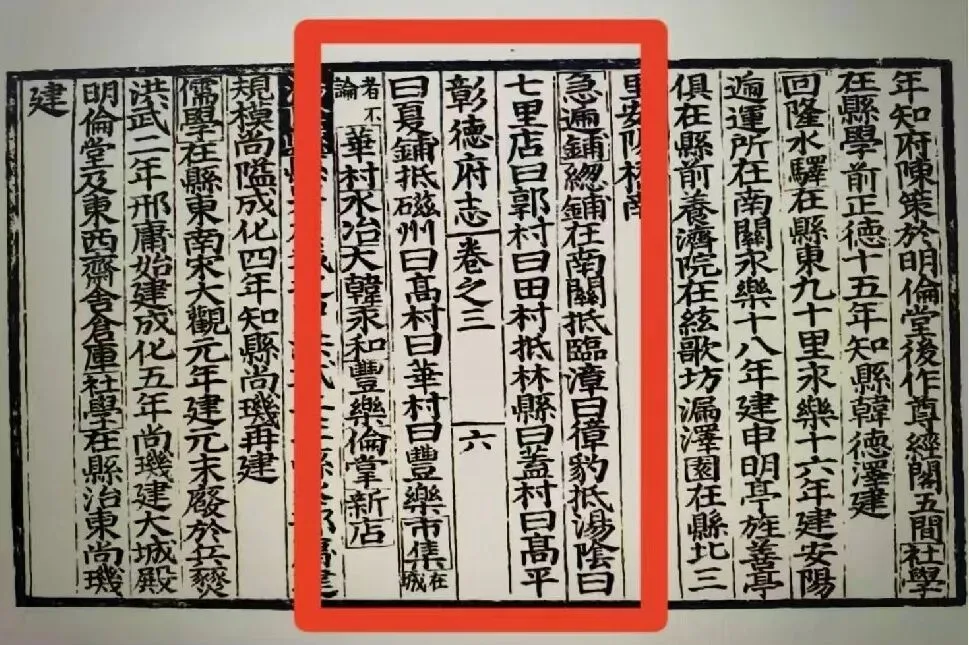 年知府陳策於明倫堂後作尊經閣五間社學
在縣學前正德十五年知縣韓德澤建
回隆水驛在縣東九十里永樂十六年建安陽
遞運所在南關永樂十八年建申明亭旌善亭
俱在縣前養濟院在絃歌坊漏澤園在縣北三
里安陽橋南
急遞鋪總鋪在南關抵臨漳曰獐豹抵湯陰曰
七里店曰郭村曰田村抵林縣曰蓋村曰高平
彰德府志 卷之三 六
曰夏鋪抵磁州曰髙村曰華村曰豐樂市集在城
者不論華村水冶天韓永和豐樂倫掌新店
規模尚隘成化四年知縣尚璣再建
儒學在縣東南宋大觀元年建元末廢於兵燹
洪武二年邢庸始建成化五年尚璣建大城殿
明倫堂及東西齋舍倉庫社學在縣治東尚璣
建